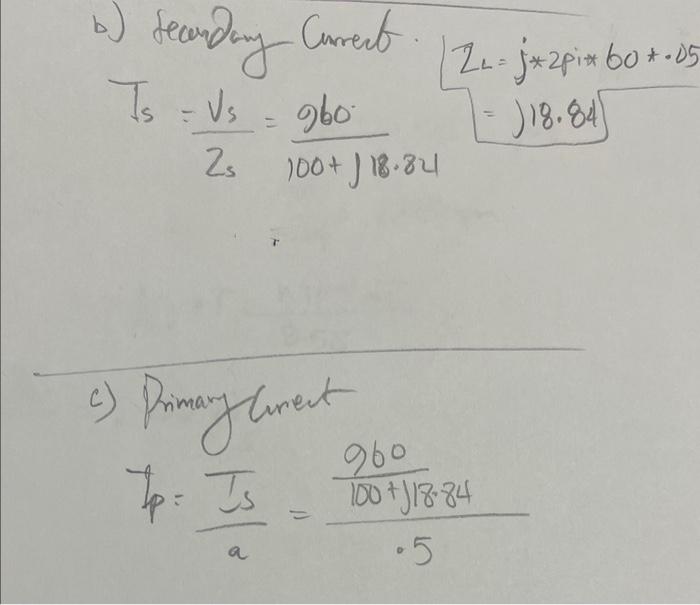 b) Secondary Current.
Z_L = j*2pi*60*.05
= j18.84
I_s = V_s/Z_s = 960/(100+j18.84)
c) Primary Current
I_p = I_s/a = (960/(100+j18.84))/.5